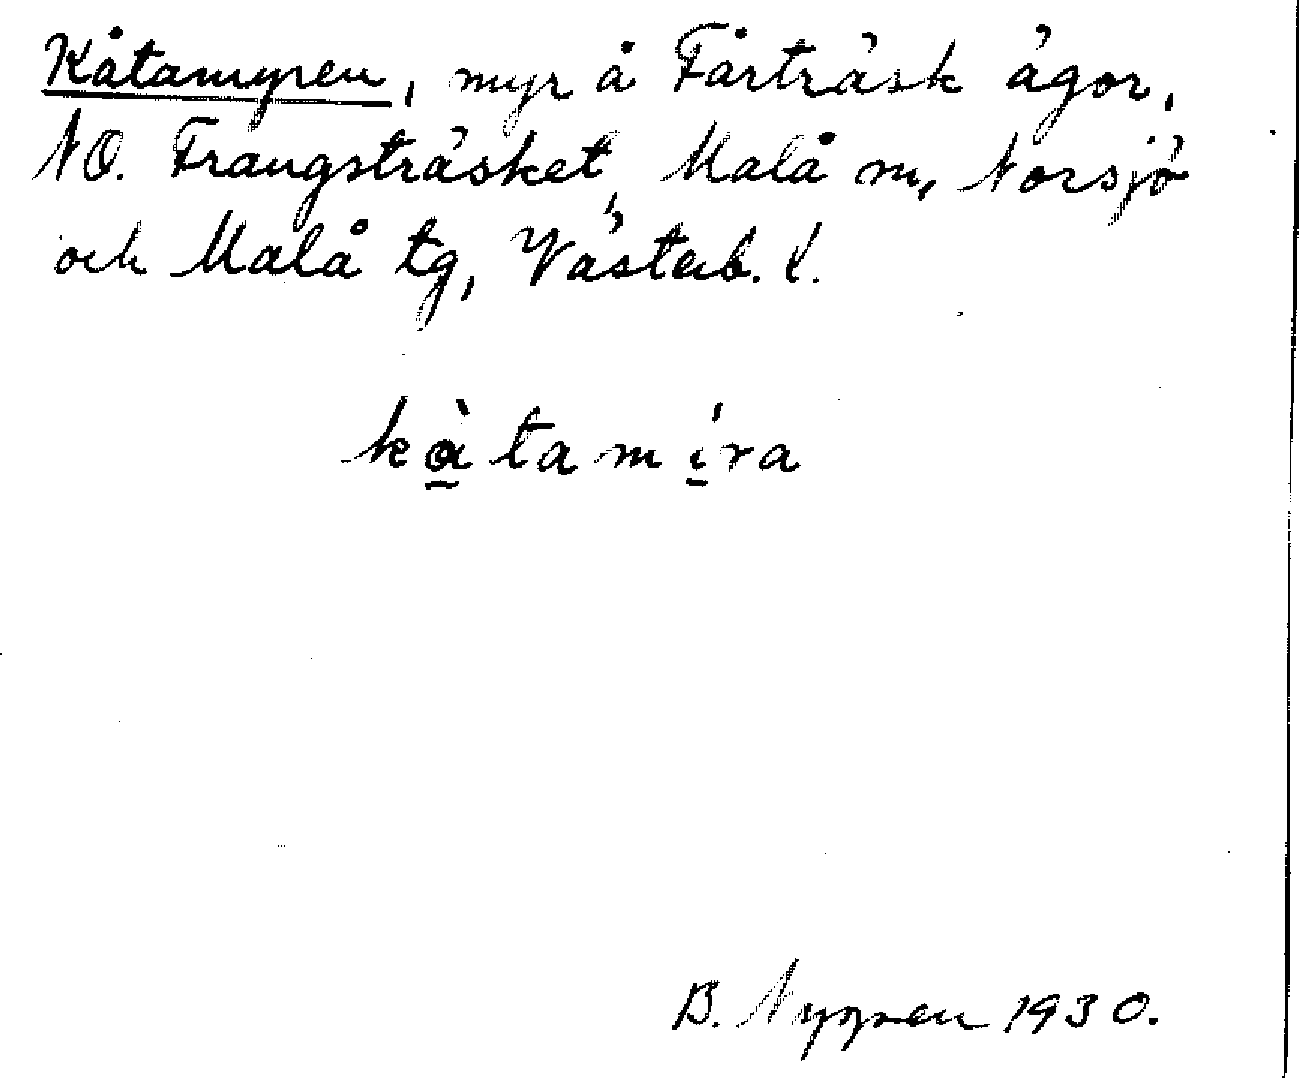 Kåtamyren, myr å Fårträsk ägor,
NO. Frangsträsket, Malå m, Norsjö
och Malå tg, Västerb. l.
kàtamíra
B. Nygren 1930.